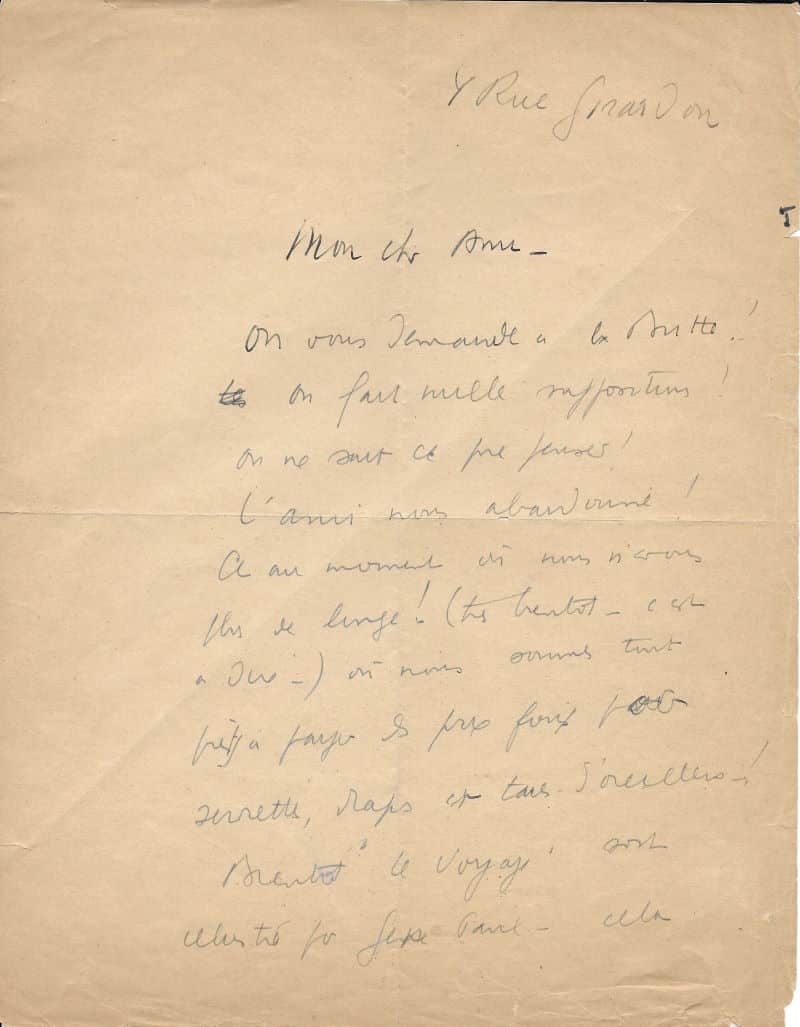 4 Rue Girardon
Mon cher Ami -
On vous demande à la Butte !
on fait mille suppositions !
on ne sait ce que penser !
L'ami nous abandonne !
Et au moment où nous n'avons
plus de linge ! (très bientôt - c'est
à dire -) où nous sommes tout
prêts à payer les prix forts pour
serviettes, draps et taies d'oreillers - !
Bientôt "le Voyage" sort
illustré par Gen Paul - cela